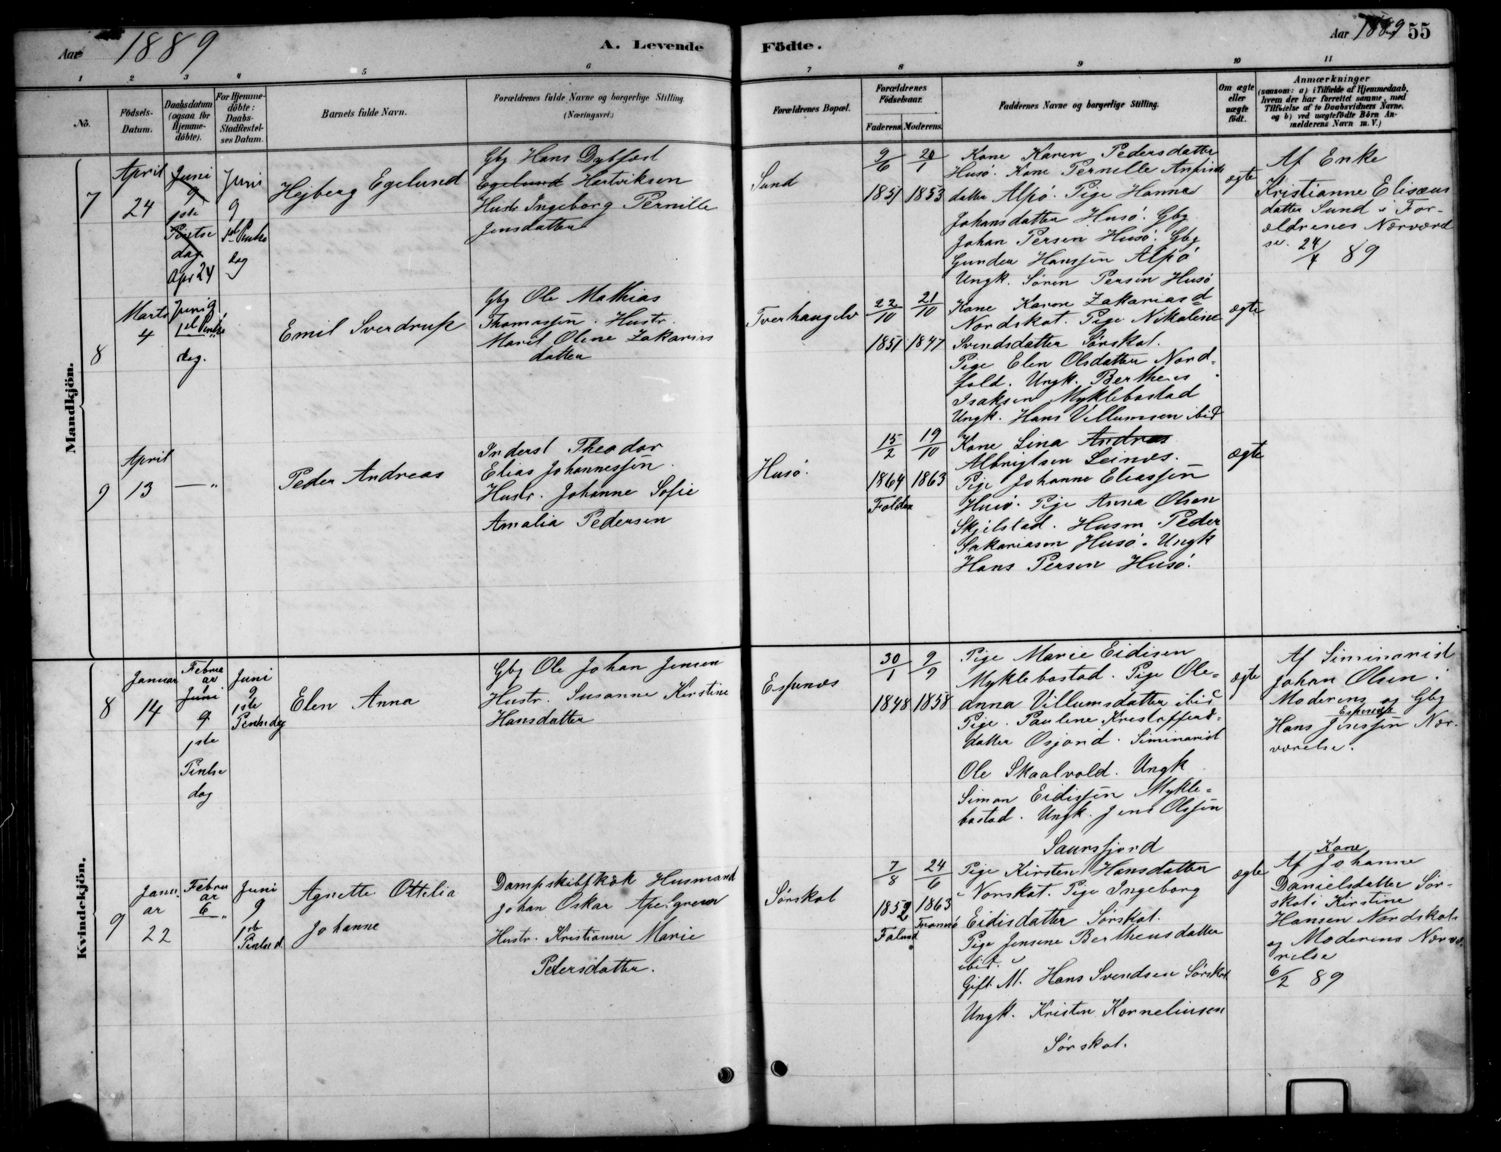 Aar 1889
A. Levende
Födte.
Aar 1889 55
1 2 3 4 5 6 7 8 9 10 11
No.
Födsels-
Datum.
Daabsdatum
(ogsaa for
Hjemme-
döbte).
For Hjemme-
döbte:
Daabs-
Stadfæstel-
ses Datum.
Barnets fulde Navn.
Forældrenes fulde Navne og borgerlige Stilling
(Næringsvei).
Forældrenes Bopæl.
Forældrenes
Födselsaar.
Faderens. Moderens.
Faddernes Navne og borgerlige Stilling.
Om ægte
eller
uægte
födt.
Anmærkninger
(saasom: a) i Tilfælde af Hjemmedaab,
hvem der har forrettet samme, med
Tilföielse af to Daabsvidners Navne,
og b) ved uægtefödte Börn An-
melderens Navn m. V.)
Mandkjön.
7
April
24
Juni
9
1ste
Pintse
dag
Apr 24
Juni
9
1st Pintse
dag
Hejberg Egelund
Gbg Hans Dybfest
Egelund Hartviksen
Hustr Ingeborg Pernille
Jensdatter
Sund
9/6 20/7
1851 1853
Kone Karen Pedersdatter
Husö. Kone Pernille Anfinds
datter Alpö. Pige Hanna
Johansdatter Husö. Gbg
Johan Persen Husö. Gbg
Gunder Hanssen Alpö
Ungk. Sören Persen Husö
ægte
Af Enke
Kristianne Elisæus
datter Sund i For-
ældrenes Nærværd
se. 24/4 89
8
Marts
4
Juni 9
1st Pintse
dag.
Emil Sverdrup
Gbg Ole Mathias
Thomassen. Hustr.
Maret Olene Zakarias
datter
Tverhaugelv
22/10 21/10
1851 1847
Kone Karen Zakariasd
Nordskot. Pige Nikoline
Svendsdatter Sörskot.
Pige Elen Olsdatter Nord-
fold. Ungk. Bertheus
Isaksen Myklebostad
Ungk. Hans Villumsen ibid
ægte
9
April
13
— "
Peder Andreas
Inderst Theodor
Elias Johannessen.
Hustr. Johanne Sofie
Amalia Pedersen
Husö.
15/2 19/10
1864 1863
Folden
Kone Lina Andreas
Albrigtsen Leines.
Pige Johanne Eliassen
Husö. Pige Anna Olsen
Skjelstad. Husm Peder
Sakariasen Husö. Ungk
Hans Persen Husö.
ægte
Kvindekjön.
8
Januar
14
Februar
Juni
9
1ste
Pintse
dag
Juni
9
1ste
Pintsedag
Elen Anna
Gbg Ole Johan Jensen
Hustr. Susanne Kirstine
Hansdatter
Espenæs
30/1 9/9
1848 1858
Pige Marie Eidisen
Myklebostad. Pige Ole-
anna Villumsdatter ibid
Pige. Pauline Kristoffers-
datter Osjord. Siminarist
Ole Skaalvold. Ungk
Simon Eidissen Mykle-
bostad. Ungk. Jens Olssen
Saursfjord
ægte
Af Siminarist
Johan Olsen.
Moderens og Gbg
Espenæs
Hans Jenssen Nær-
værelse.
9
Janu-
ar
22
Febru
ar
6 "
Juni
9
1ste
Pintse d
Agnette Ottilia
Johanne
Dampskibsk Husmand
Johan Oskar Apelgreen
Hustr. Kristianne Marie
Petersdatter.
Sörskot
7/8 24/6
1852 1863
Tromsö
Pige Kirsten Hansdatter
Norskot. Pige Ingeborg
Eidisdatter Sörskot.
Pige Jensine Bertheusdatter
ibid.
Gift M. Hans Svendsen Sörskot
Ungk. Kristen Kornelinsen
Sörskot.
ægte
Kone
Af Johanne
Danielsdatter Sör-
skot. Kirstine
Hansen Nordskot
og Moderens Nærvæ
relse
6/2 89